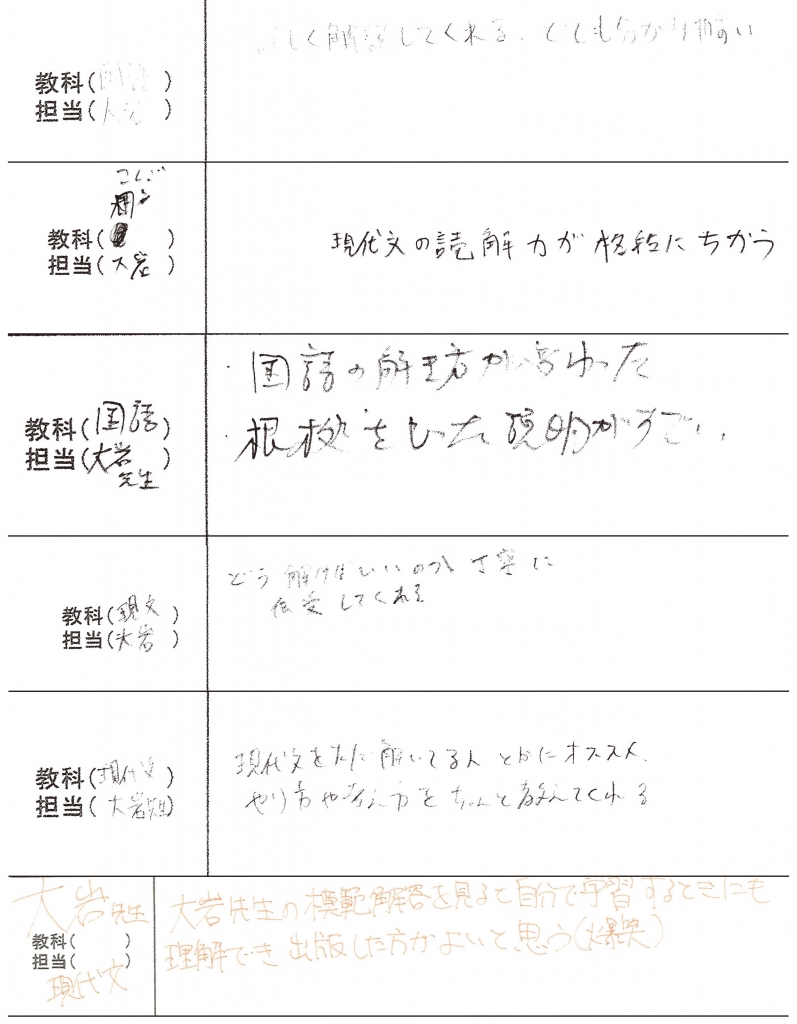 しく解説してくれる。とても分かり易い
教科(国語)
担当(大岩)
こくご
国
教科( )
担当(大岩)
現代文の読解力が格段にちがう
・国語の解き方が変わった
・根拠をもった説明がすごい
教科(国語)
担当(大岩先生)
どう解けばいいのか丁寧に
伝受してくれる
教科(現文)
担当(大岩)
現代文をただ解いてる人とかにオススメ。
やり方や考え方をちゃんと教えてくれる
教科(現代文)
担当(大岩先生)
大岩先生
教科( )
担当( )
現代文
大岩先生の模範解答を見ると自分で学習するときにも
理解でき出版した方がよいと思う(爆笑)